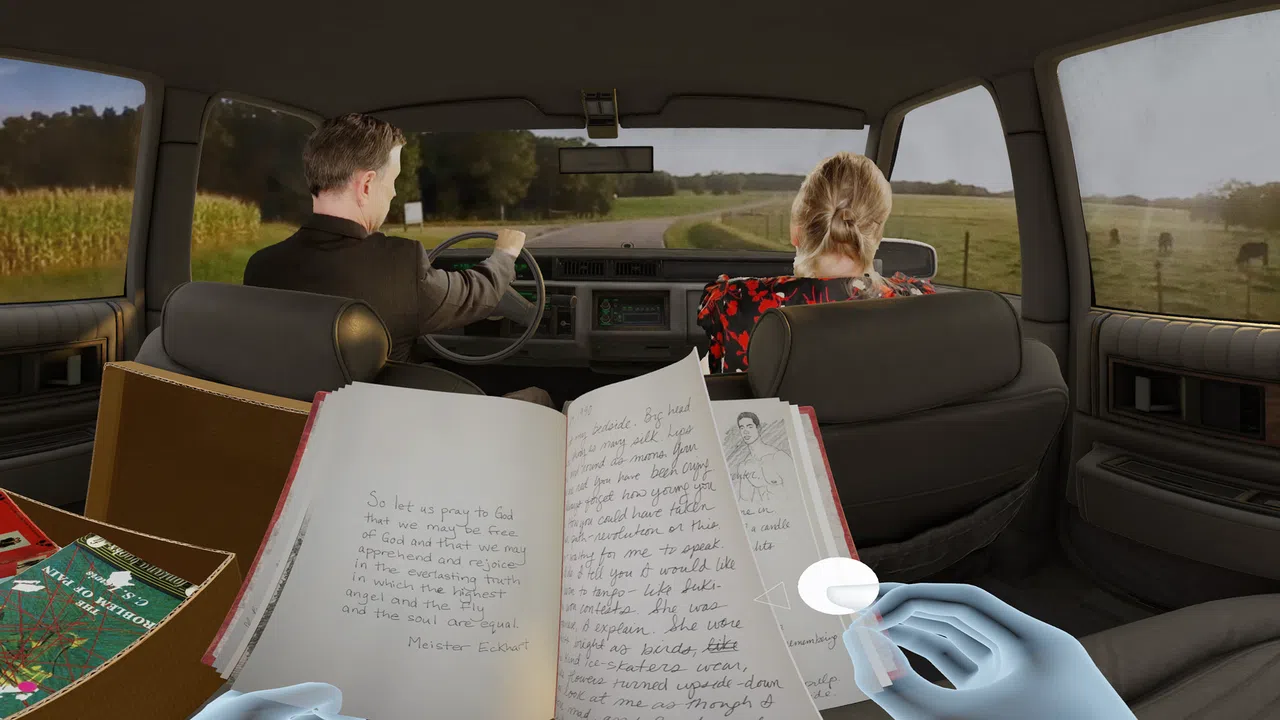 So let us pray to God
that we may be free
of God and that we may
apprehend and rejoice
in the everlasting truth
in which the highest
angel and the Fly
and the soul are equal.
Meister Eckhart
my bedside. Big head
as navy silk. Lips
'round its moons.
You have been crying
forget how young you
you could have taken
revolution or this
waiting for me to speak.
tell you I would like
to tango - like Suki-
contests. She was
I explain. She wore
bright as birds, like
ice-skaters wear,
flowers turned upside-down
look at me as though I
mad, and
in.
a candle
lits
remembering
THE
PROBLEM OF PAIN
C.S.